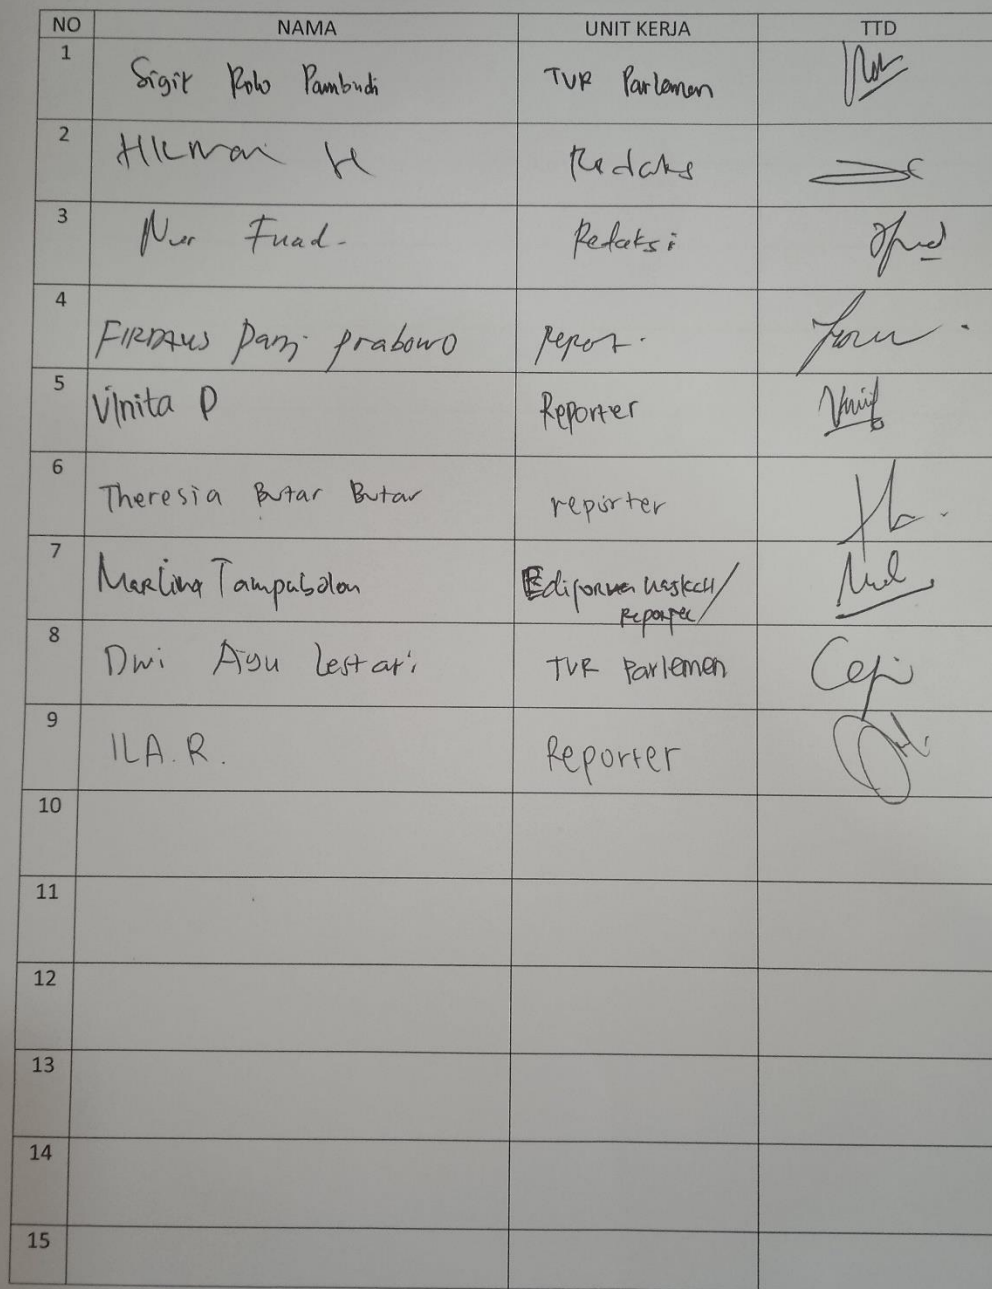 NO NAMA UNIT KERJA TTD
1 Sigit Rolo Pambudi TVR Parlemen
2 HIKMAN H Redaks
3 Nur Fuad- Redaksi
4 FIRDAUS Panj prabowo repor-
5 Vinita P Reporter
6 Theresia Butar Butar reporter
7 Marlina Tampubolon Ediforman naskah/
Reporter
8 Dwi Ayu Lestari TVR Parlemen
9 ILA. R. Reporter
10
11
12
13
14
15